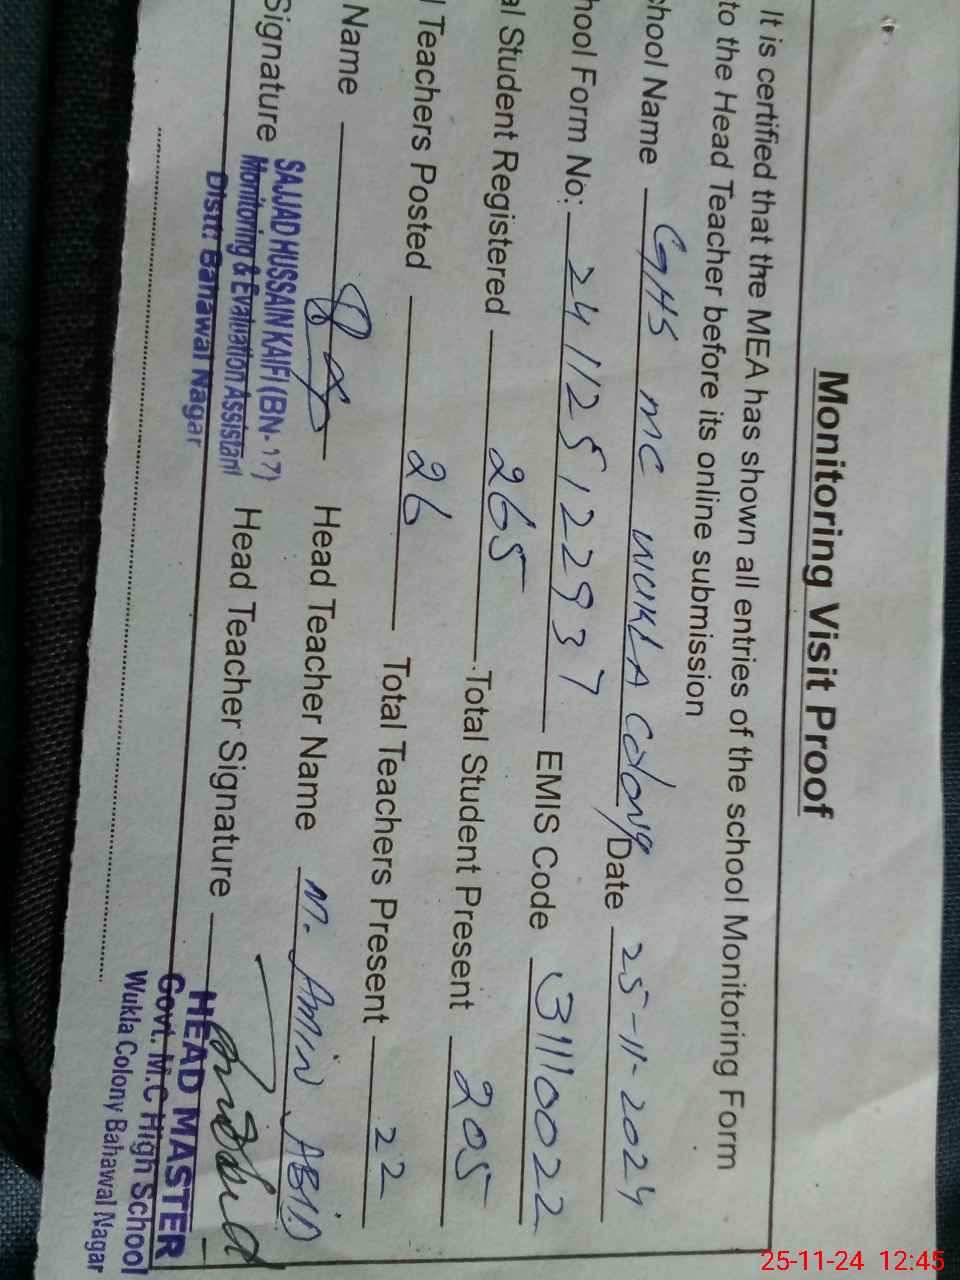 Monitoring Visit Proof
It is certified that the MEA has shown all entries of the school Monitoring Form
to the Head Teacher before its online submission
chool Name GHS MC WUKLA Colony Date 25-11-2024
hool Form No: 241125122937 EMIS Code 31110022
al Student Registered 265 Total Student Present 205
l Teachers Posted 26 Total Teachers Present 22
Name Head Teacher Name M. AMIN ABID
Signature Head Teacher Signature
SAJJAD HUSSAIN KAIFI (BN-17)
Monitoring & Evaluation Assistant
Distt: Bahawal Nagar
HEAD MASTER
Govt. M.C High School
Wukla Colony Bahawal Nagar
25-11-24 12:45